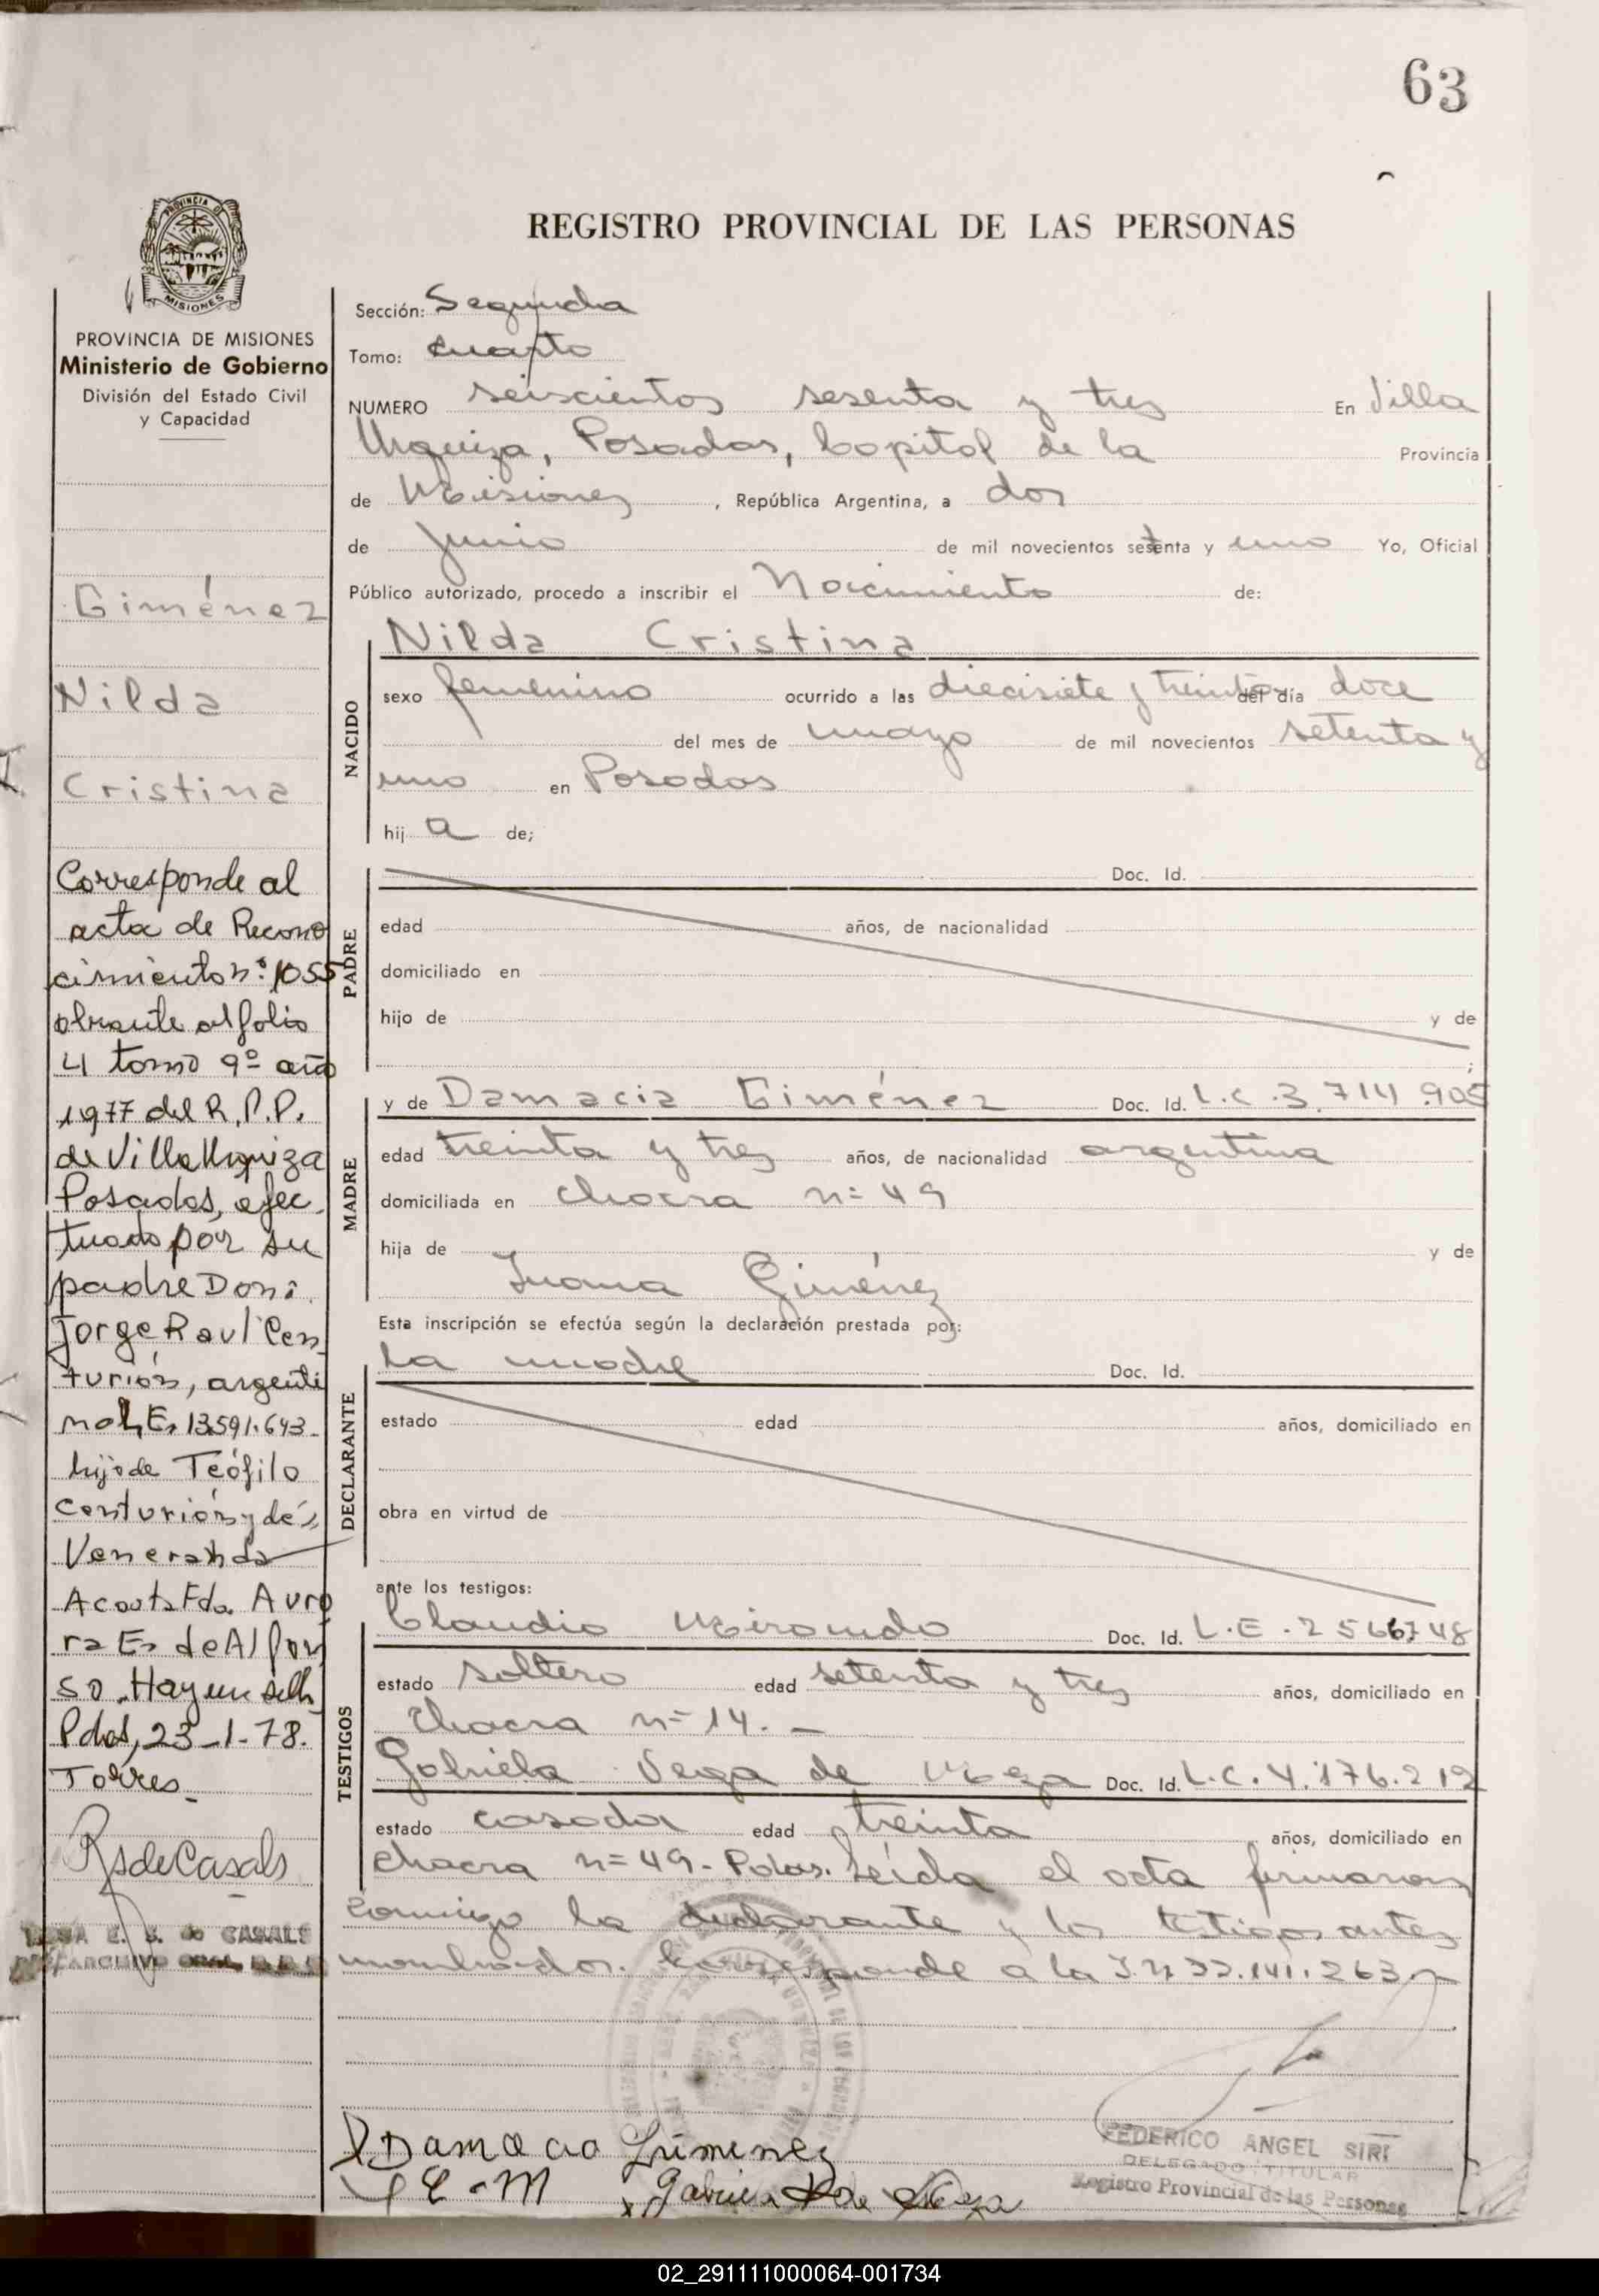 63
REGISTRO PROVINCIAL DE LAS PERSONAS
PROVINCIA DE MISIONES
MISIONES
PROVINCIA DE MISIONES
Ministerio de Gobierno
División del Estado Civil
y Capacidad
Giménez
Nilda
Cristina
Corresponde al
acta de Recono
cimiento nº 1055
obrante al folio
41 tomo 9º año
1977 del R.P.P.
de Villa Urquiza
Posadas, efec
tuado por su
padre Don:
Jorge Raul Cen
turión, argenti
no L.E. 13.591.643
hijo de Teófilo
Centurión y de
Veneranda
Acosta Fdo. Auro
ra E. de Alfon
so. Hay un sello
Pdas, 23-1-78.
Torres
RsdeCasals
E. S. de CASALS
ARCHIVO
Sección: Segunda
Tomo: Cuarto
NUMERO seiscientos sesenta y tres En Villa
Urquiza, Posadas, Capital de la Provincia
de Misiones, República Argentina, a dos
de junio de mil novecientos setenta y uno Yo, Oficial
Público autorizado, procedo a inscribir el Nacimiento de:
NACIDO
Nilda Cristina
sexo femenino ocurrido a las diecisiete y treinta del día doce
del mes de mayo de mil novecientos setenta y
uno en Posadas
hij a de;
PADRE
Doc. Id.
edad años, de nacionalidad
domiciliado en
hijo de y de
;
MADRE
y de Damacia Giménez Doc. Id. L.C. 3.714.905
edad treinta y tres años, de nacionalidad argentina
domiciliada en chacra n= 49
hija de y de
Juana Giménez
Esta inscripción se efectúa según la declaración prestada por:
DECLARANTE
La madre Doc. Id.
estado edad años, domiciliado en
obra en virtud de
ante los testigos:
TESTIGOS
Claudio Mirando Doc. Id. L.E. 2566748
estado soltero edad setenta y tres años, domiciliado en
Chacra n= 14. -
Gabriela Vega de Meza Doc. Id. L.C. 4.176.212
estado casada edad treinta años, domiciliado en
chacra n= 49 - Pdas. Leída el acta firmaron
conmigo la declarante y los testigos antes
nombrados. Corresponde a la 22.141.263
Damacia Gimenez
FEDERICO ANGEL SIRI
DELEGADO TITULAR
Registro Provincial de las Personas
02_291111000064-001734